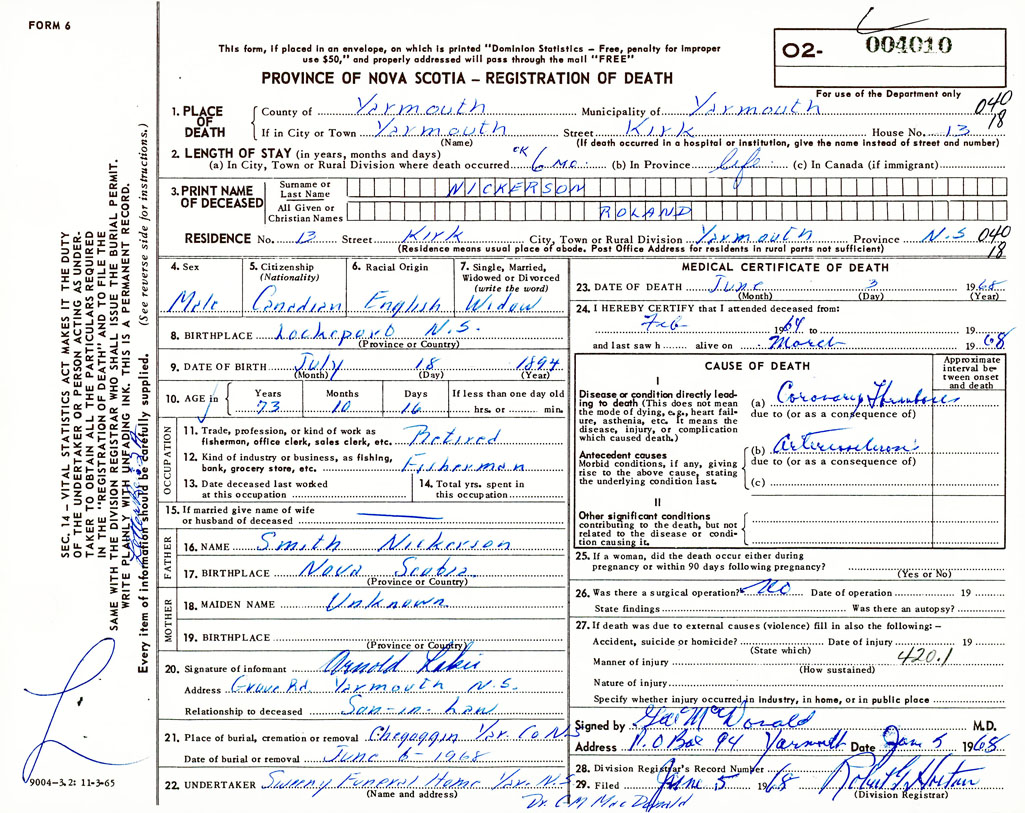 FORM 6
This form, if placed in an envelope, on which is printed "Dominion Statistics – Free, penalty for improper
use $50," and properly addressed will pass through the mail "FREE"
PROVINCE OF NOVA SCOTIA – REGISTRATION OF DEATH
O2- 004010
For use of the Department only
040
18
1. PLACE OF DEATH County of Yarmouth Municipality of Yarmouth
If in City or Town Yarmouth Street Kirk House No. 13
(Name) (If death occurred in a hospital or institution, give the name instead of street and number)
2. LENGTH OF STAY (in years, months and days)
(a) In City, Town or Rural Division where death occurred OK 6 mo. (b) In Province life (c) In Canada (if immigrant)
3. PRINT NAME OF DECEASED Surname or Last Name NICKERSON
All Given or Christian Names ROLAND
RESIDENCE No. 13 Street Kirk City, Town or Rural Division Yarmouth Province N.S 040
(Residence means usual place of abode. Post Office Address for residents in rural parts not sufficient) 18
4. Sex Male
5. Citizenship (Nationality) Canadian
6. Racial Origin English
7. Single, Married, Widowed or Divorced (write the word) Widow
8. BIRTHPLACE Lockeport N.S.
(Province or Country)
9. DATE OF BIRTH July 18 1894
(Month) (Day) (Year)
10. AGE in Years Months Days If less than one day old
73 10 16 hrs. or min.
OCCUPATION
11. Trade, profession, or kind of work as fisherman, office clerk, sales clerk, etc. Retired
12. Kind of industry or business, as fishing, bank, grocery store, etc. Fisherman
13. Date deceased last worked at this occupation
14. Total yrs. spent in this occupation
15. If married give name of wife or husband of deceased
FATHER
16. NAME Smith Nickerson
17. BIRTHPLACE Nova Scotia
(Province or Country)
MOTHER
18. MAIDEN NAME Unknown
19. BIRTHPLACE
(Province or Country)
20. Signature of informant Arnold
Address Grove Rd. Yarmouth N.S.
Relationship to deceased Son-in-Law
21. Place of burial, cremation or removal Chegoggin Yar. Co N.S
Date of burial or removal June 6 1968
22. UNDERTAKER Sweeny Funeral Home Yar. N.S
(Name and address)
Dr. C M MacDonald
MEDICAL CERTIFICATE OF DEATH
23. DATE OF DEATH June 3 1968
(Month) (Day) (Year)
24. I HEREBY CERTIFY that I attended deceased from:
Feb 1964 to 19
and last saw h alive on March 1968
CAUSE OF DEATH
Approximate interval between onset and death
I
Disease or condition directly leading to death (This does not mean the mode of dying, e.g., heart failure, asthenia, etc. It means the disease, injury, or complication which caused death.)
(a) Coronary Thrombosis
due to (or as a consequence of)
Antecedent causes
Morbid conditions, if any, giving rise to the above cause, stating the underlying condition last.
(b) Arteriosclerosis
due to (or as a consequence of)
(c)
II
Other significant conditions contributing to the death, but not related to the disease or condition causing it.
25. If a woman, did the death occur either during pregnancy or within 90 days following pregnancy?
(Yes or No)
26. Was there a surgical operation? No Date of operation 19
State findings Was there an autopsy?
27. If death was due to external causes (violence) fill in also the following: –
Accident, suicide or homicide? Date of injury 19
(State which)
Manner of injury 420.1
(How sustained)
Nature of injury
Specify whether injury occurred in industry, in home, or in public place
Signed by McDonald M.D.
Address P.O Box 94 Yarmouth Date June 5 1968
28. Division Registrar's Record Number
29. Filed June 5 1968 Robert G Horton
(Division Registrar)
SEC. 14 – VITAL STATISTICS ACT MAKES IT THE DUTY
OF THE UNDERTAKER OR PERSON ACTING AS UNDERTAKER
TO OBTAIN ALL THE PARTICULARS REQUIRED
IN THE "REGISTRATION OF DEATH" AND TO FILE THE
SAME WITH THE DIVISION REGISTRAR WHO SHALL ISSUE THE BURIAL PERMIT.
WRITE PLAINLY WITH UNFADING INK. THIS IS A PERMANENT RECORD.
Every item of information should be carefully supplied. (See reverse side for instructions.)
9004-3.2: 11-3-65